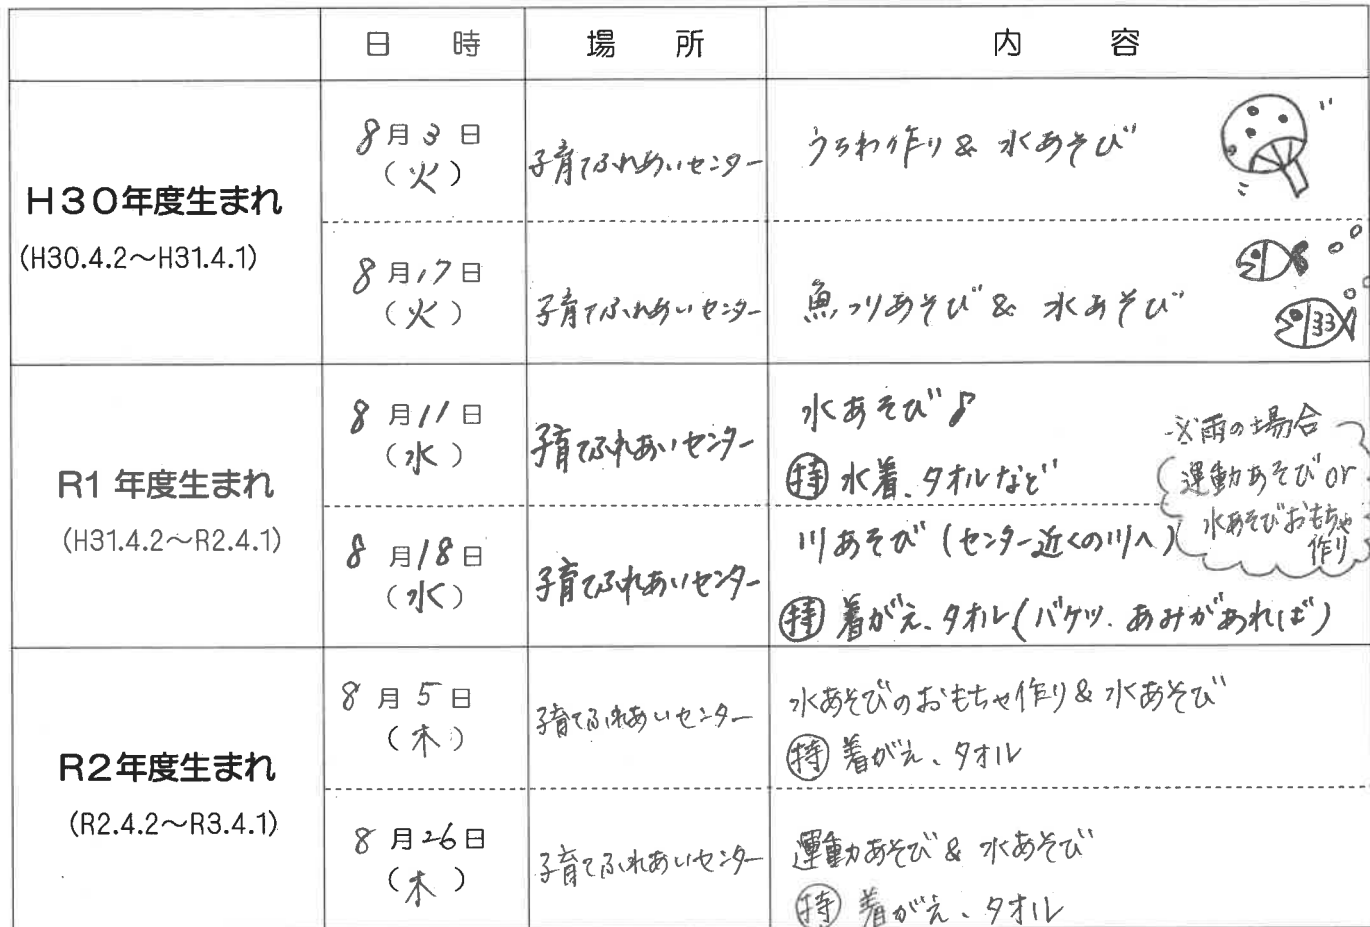 日 時 場 所 内 容
H30年度生まれ
(H30.4.2～H31.4.1)
8月3日
(火)
子育てふれあいセンター
うちわ作り & 水あそび
8月17日
(火)
子育てふれあいセンター
魚つりあそび & 水あそび
R1年度生まれ
(H31.4.2～R2.4.1)
8月11日
(水)
子育てふれあいセンター
水あそび♪
㊕ 水着、タオルなど
※雨の場合
運動あそび or
水あそびおもちゃ
作り
8月18日
(水)
子育てふれあいセンター
川あそび (センター近くの川へ)
持 着がえ、タオル(バケツ、あみがあれば)
R2年度生まれ
(R2.4.2～R3.4.1)
8月5日
(木)
子育てふれあいセンター
水あそびのおもちゃ作り & 水あそび
持 着がえ、タオル
8月26日
(木)
子育てふれあいセンター
運動あそび & 水あそび
持 着がえ、タオル